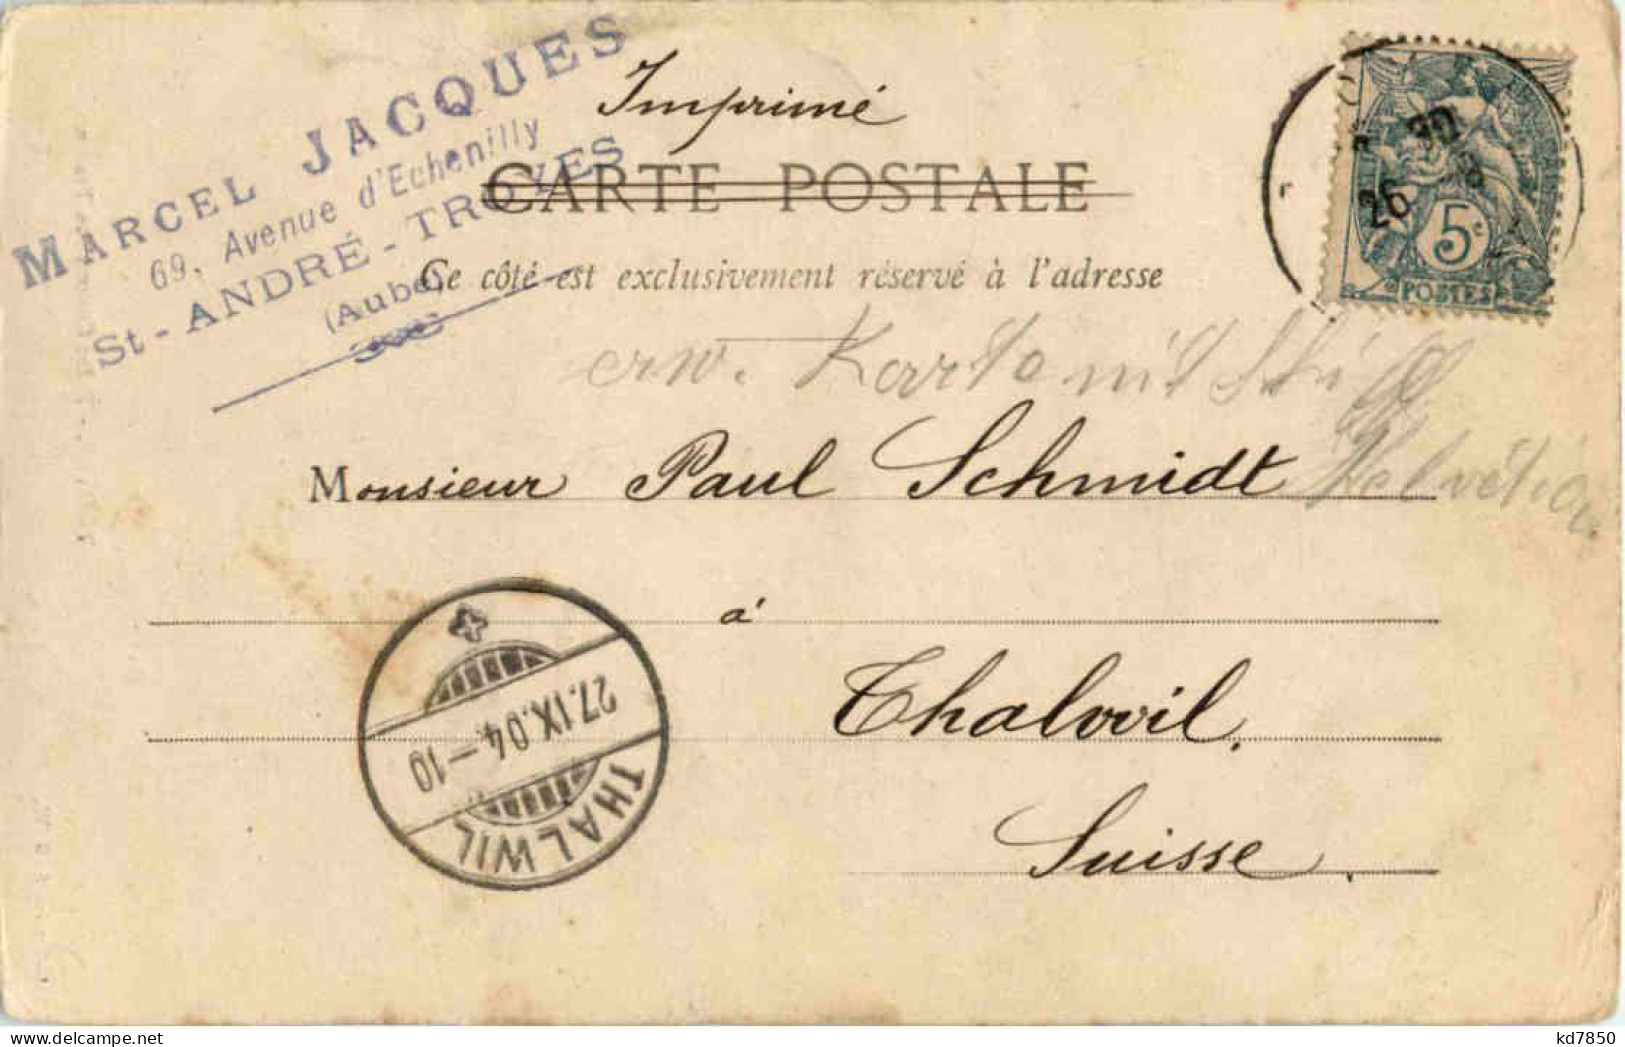 MARCEL JACQUES
69, Avenue d'Echenilly
St-ANDRÉ-TROYES
(Aube)
Imprimé
CARTE POSTALE
Ce côté est exclusivement réservé à l'adresse
30
26
5c
POSTES
erw. Karte mit
Helvetia
Monsieur Paul Schmidt
à
Thalwil.
Suisse.
27.IX.04.–10
THALWIL
kd7850